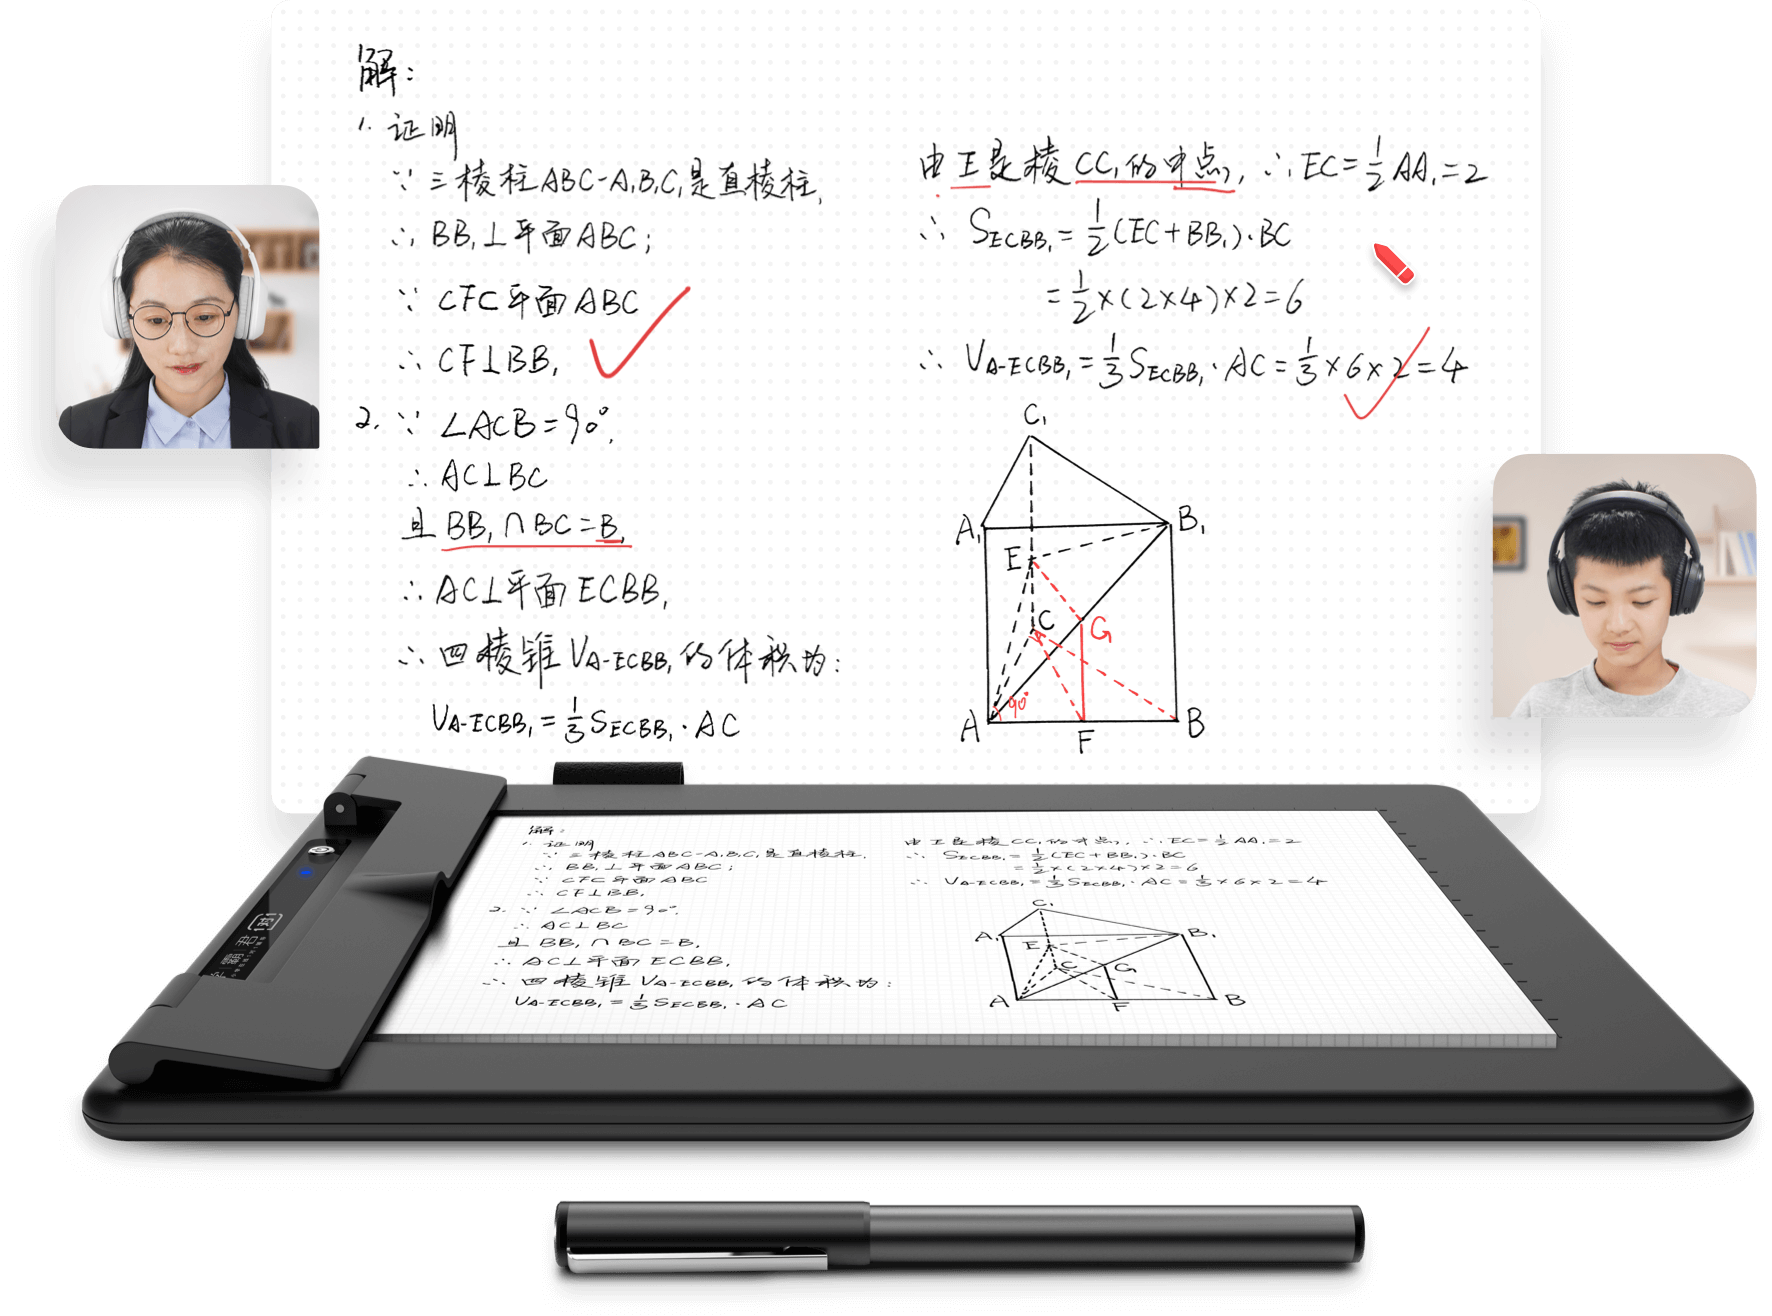 解：
1. 证明
∵ 三棱柱ABC-A₁B₁C₁是直棱柱，
∴ BB₁⊥平面ABC；
∵ CFC平面ABC
∴ CF⊥BB₁
2. ∵ ∠ACB=90°，
∴ AC⊥BC
且 BB₁∩BC=B，
∴ AC⊥平面ECBB₁
∴ 四棱锥VA-ECBB₁的体积为：
VA-ECBB₁=1/3SECBB₁·AC
由E是棱CC₁的中点，∴EC=1/2AA₁=2
∴ SECBB₁=1/2(EC+BB₁)·BC
=1/2×(2×4)×2=6
∴ VA-ECBB₁=1/3SECBB₁·AC=1/3×6×2=4
C₁
A₁
B₁
E
C
G
90°
A
F
B
解：
1. 证明
∵ 三棱柱ABC-A₁B₁C₁是直棱柱，
∴ BB₁⊥平面ABC；
∵ CFC平面ABC
∴ CF⊥BB₁
2. ∵ ∠ACB=90°，
∴ AC⊥BC
且 BB₁∩BC=B，
∴ AC⊥平面ECBB₁
∴ 四棱锥VA-ECBB₁的体积为：
VA-ECBB₁=1/3SECBB₁·AC
由E是棱CC₁的中点，∴EC=1/2AA₁=2
∴ SECBB₁=1/2(EC+BB₁)·BC
=1/2×(2×4)×2=6
∴ VA-ECBB₁=1/3SECBB₁·AC=1/3×6×2=4
C₁
A₁
B₁
E
C
G
A
F
B